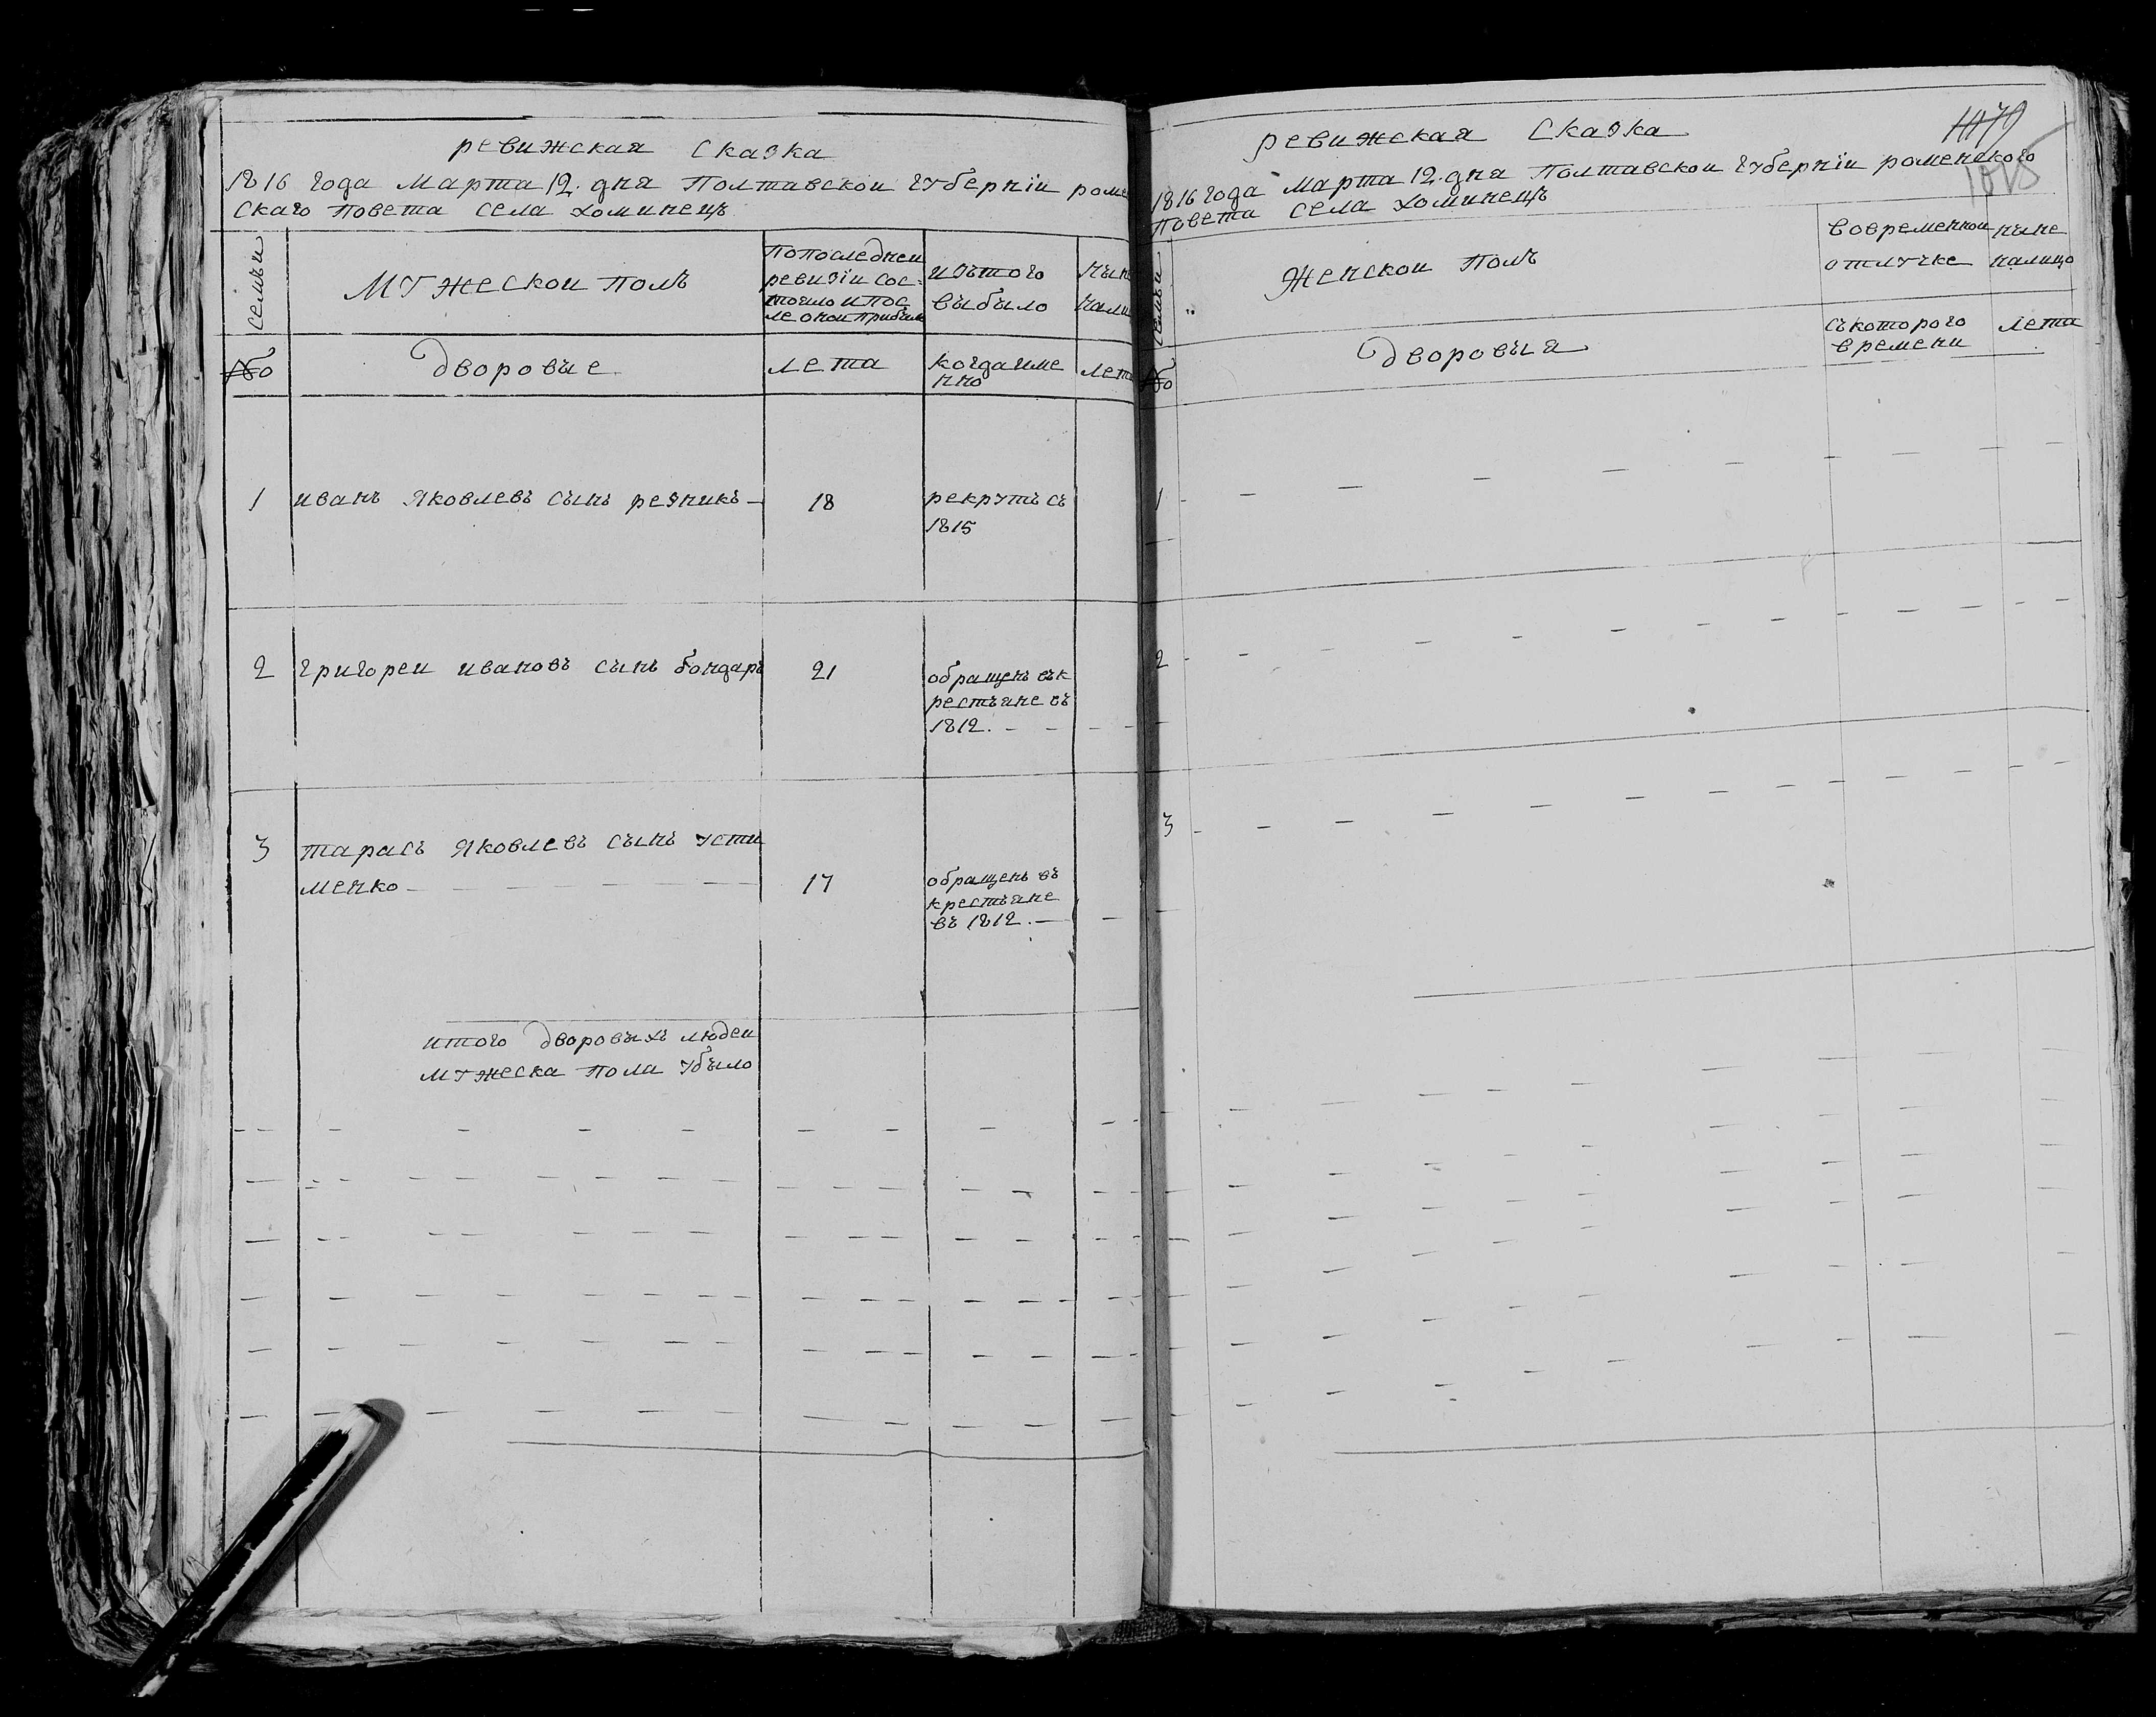 ревижская сказка
1816 года марта 12. дня Полтавскои губерніи роме
скаго повета села хоминецъ
семьи
мужескои полъ
попоследнеи
ревизіи сос-
тояло и пос
ле онои прибыло
изътого
выбыло
ныне
нали
№
дворовые
лета
когда име
нно
лета
1 иванъ яковлевъ сынъ резникъ 18 рекрутъ съ
1815
2 григореи ивановъ сынъ бондаръ 21 обращенъ въ к
рестьяне въ
1812.
3 тарасъ яковлевъ сынъ усти
менко 17 обращенъ въ
крестьяне
въ 1812.
итого дворовыхъ людеи
мужеска пола убыло
ревижская сказка
1816 года марта 12. дня Полтавскои губерніи роменского
повета села хоминецъ
1015
семьи
женскои полъ
вовременнои
отлучке
ныне
налицо
№
дворовыя
съкоторого
времени
лета
1
2
3